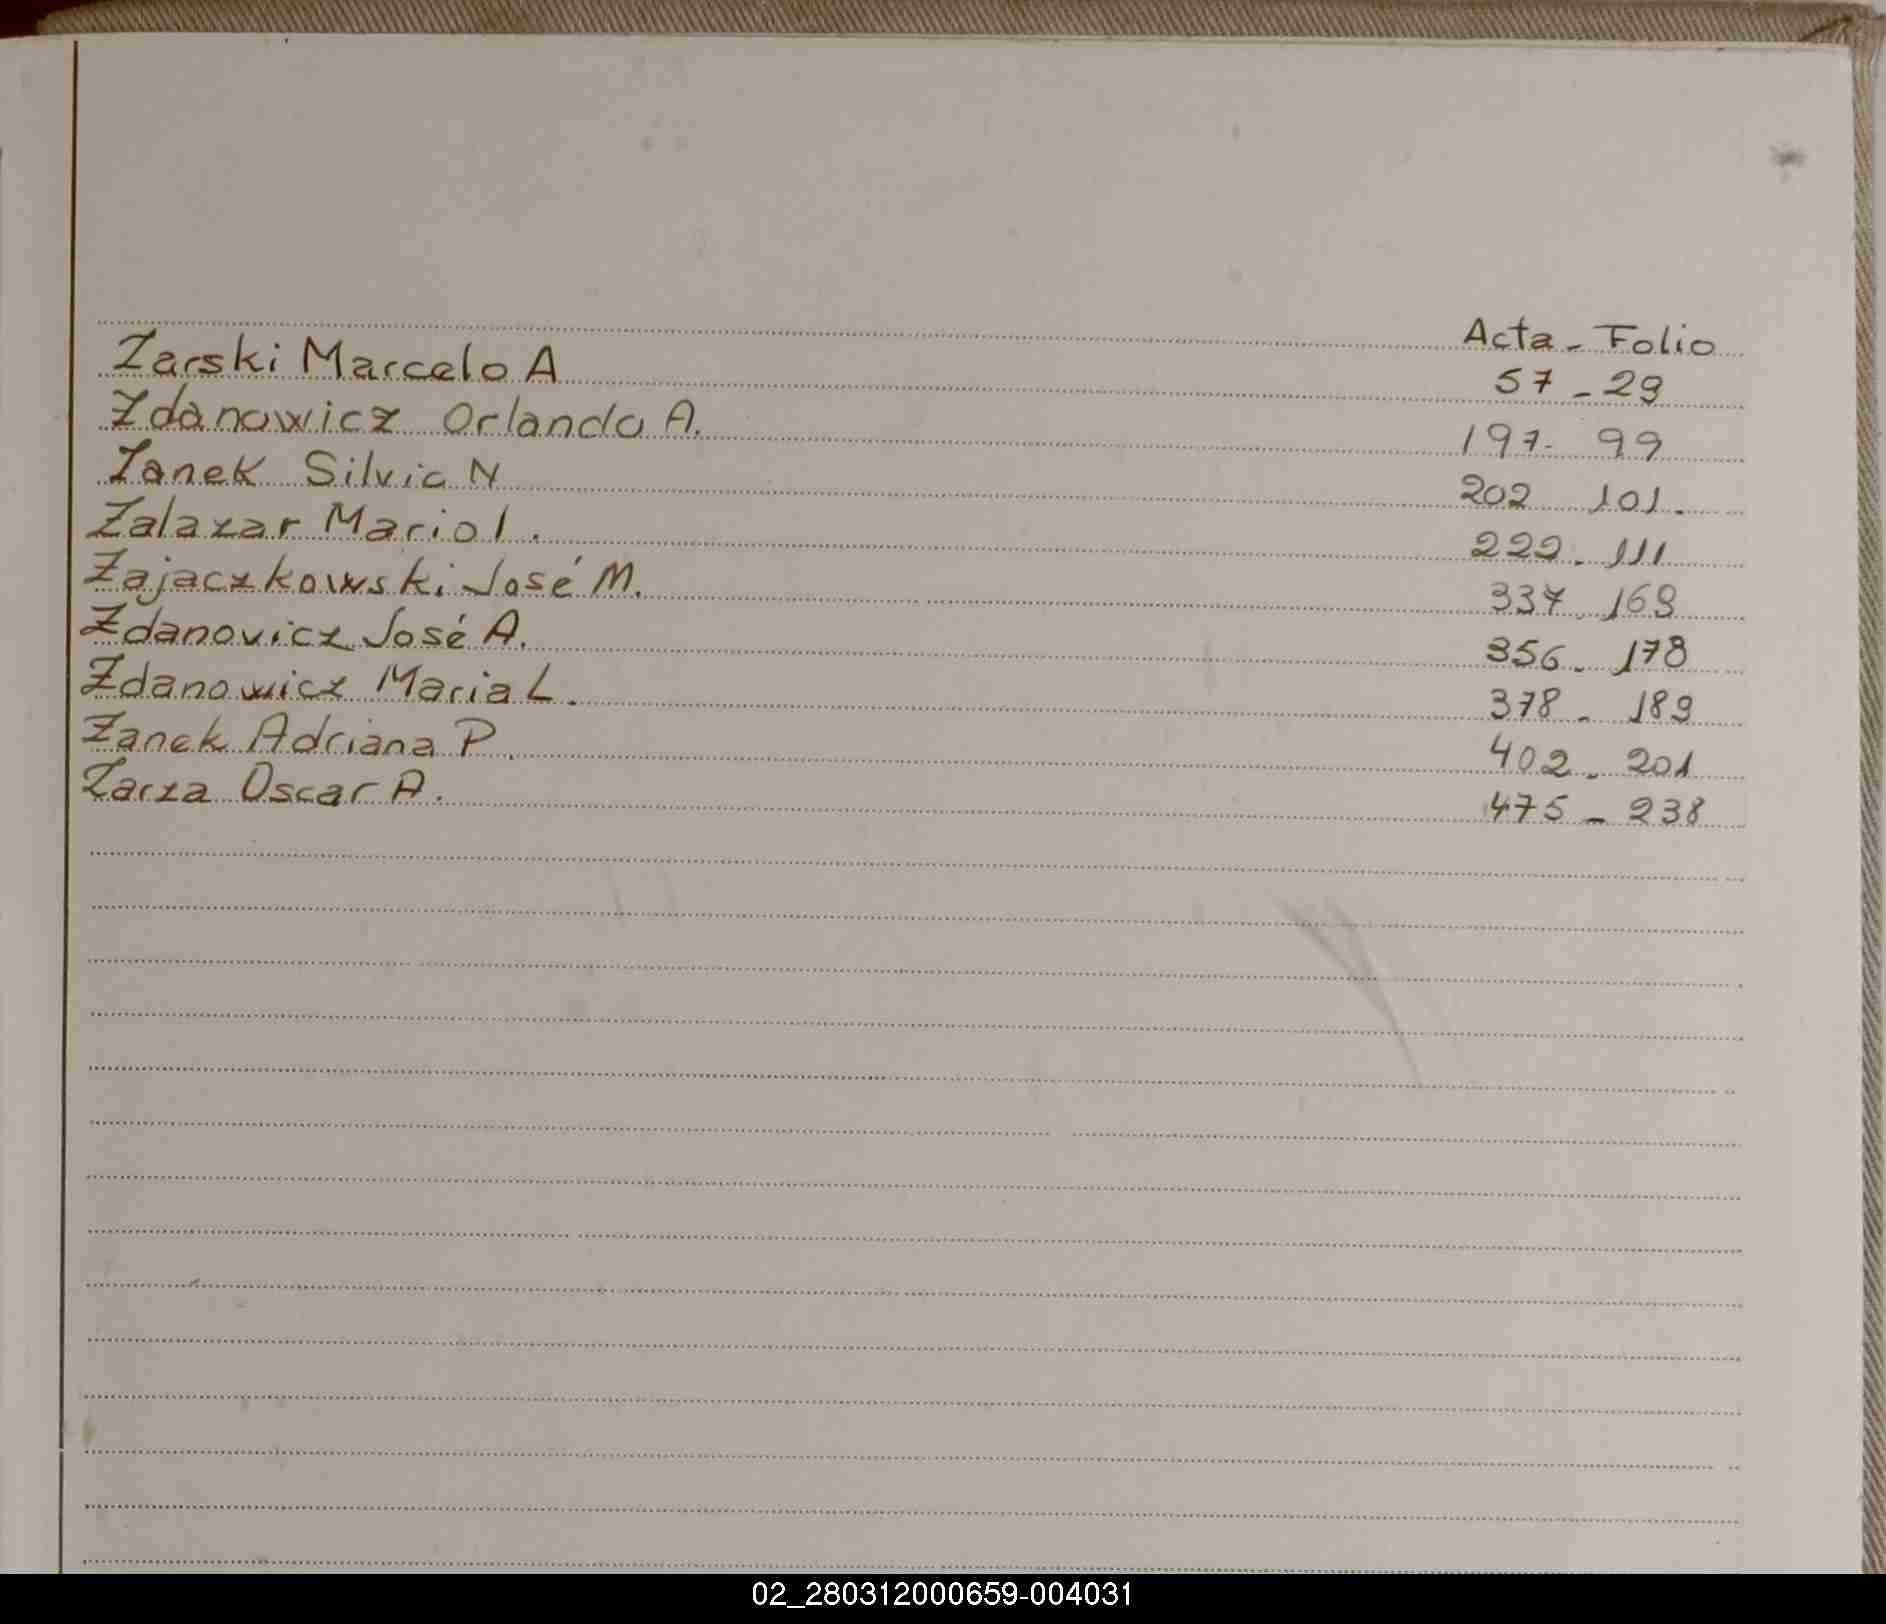 Acta - Folio
Zarski Marcelo A 57 - 29
Zdanowicz Orlando A. 197 - 99
Zanek Silvia N 202 101.
Zalazar Mario I. 222 - 111
Zajaczkowski José M. 337 169
Zdanovicz José A. 356 - 178
Zdanowicz Maria L. 378 - 189
Zanek Adriana P. 402 - 201
Zarza Oscar A. 475 - 238
02_280312000659-004031